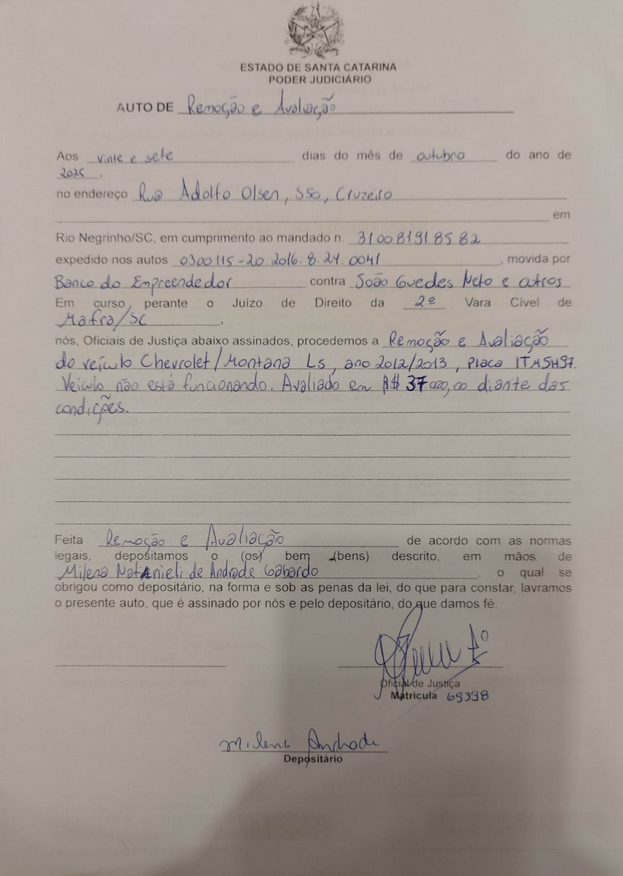 ESTADO DE SANTA CATARINA
PODER JUDICIÁRIO
AUTO DE Remoção e Avaliação
Aos vinte e sete dias do mês de outubro do ano de
2025.
no endereço Rua Adolfo Olsen, 550, Cruzeiro
em
Rio Negrinho/SC, em cumprimento ao mandado n. 310081918582
expedido nos autos 0300115-20.2016.8.24.0041, movida por
Banco do Empreendedor contra João Guedes Neto e outros
Em curso perante o Juizo de Direito da 2ª Vara Civel de
Mafra/SC.
nós, Oficiais de Justiça abaixo assinados, procedemos a Remoção e Avaliação
do veículo Chevrolet/Montana Ls, ano 2012/2013, Placa
Veículo não está funcionando. Avaliado em R$ 37000,00 diante das
condições.
Feita Remoção e Avaliação de acordo com as normas
legais, depositamos o (os) bem (bens) descrito, em mãos de
Milena Natanieli de Andrade Gabardo, o qual se
obrigou como depositário, na forma e sob as penas da lei, do que para constar, lavramos
o presente auto, que é assinado por nós e pelo depositário, do que damos fé.
Oficial de Justiça
Matricula 69398
Milena Andrade
Depositário